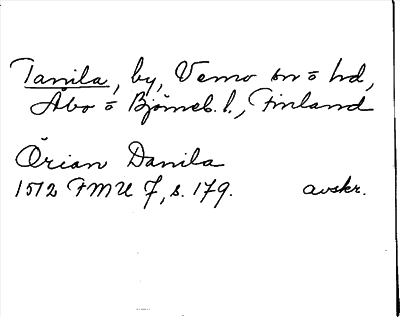 Tanila, by, Vemo sn ō hd,
Åbo ō Björneb. l., Finland
Örian Danila
1512 FMU 7, s. 179. avskr.